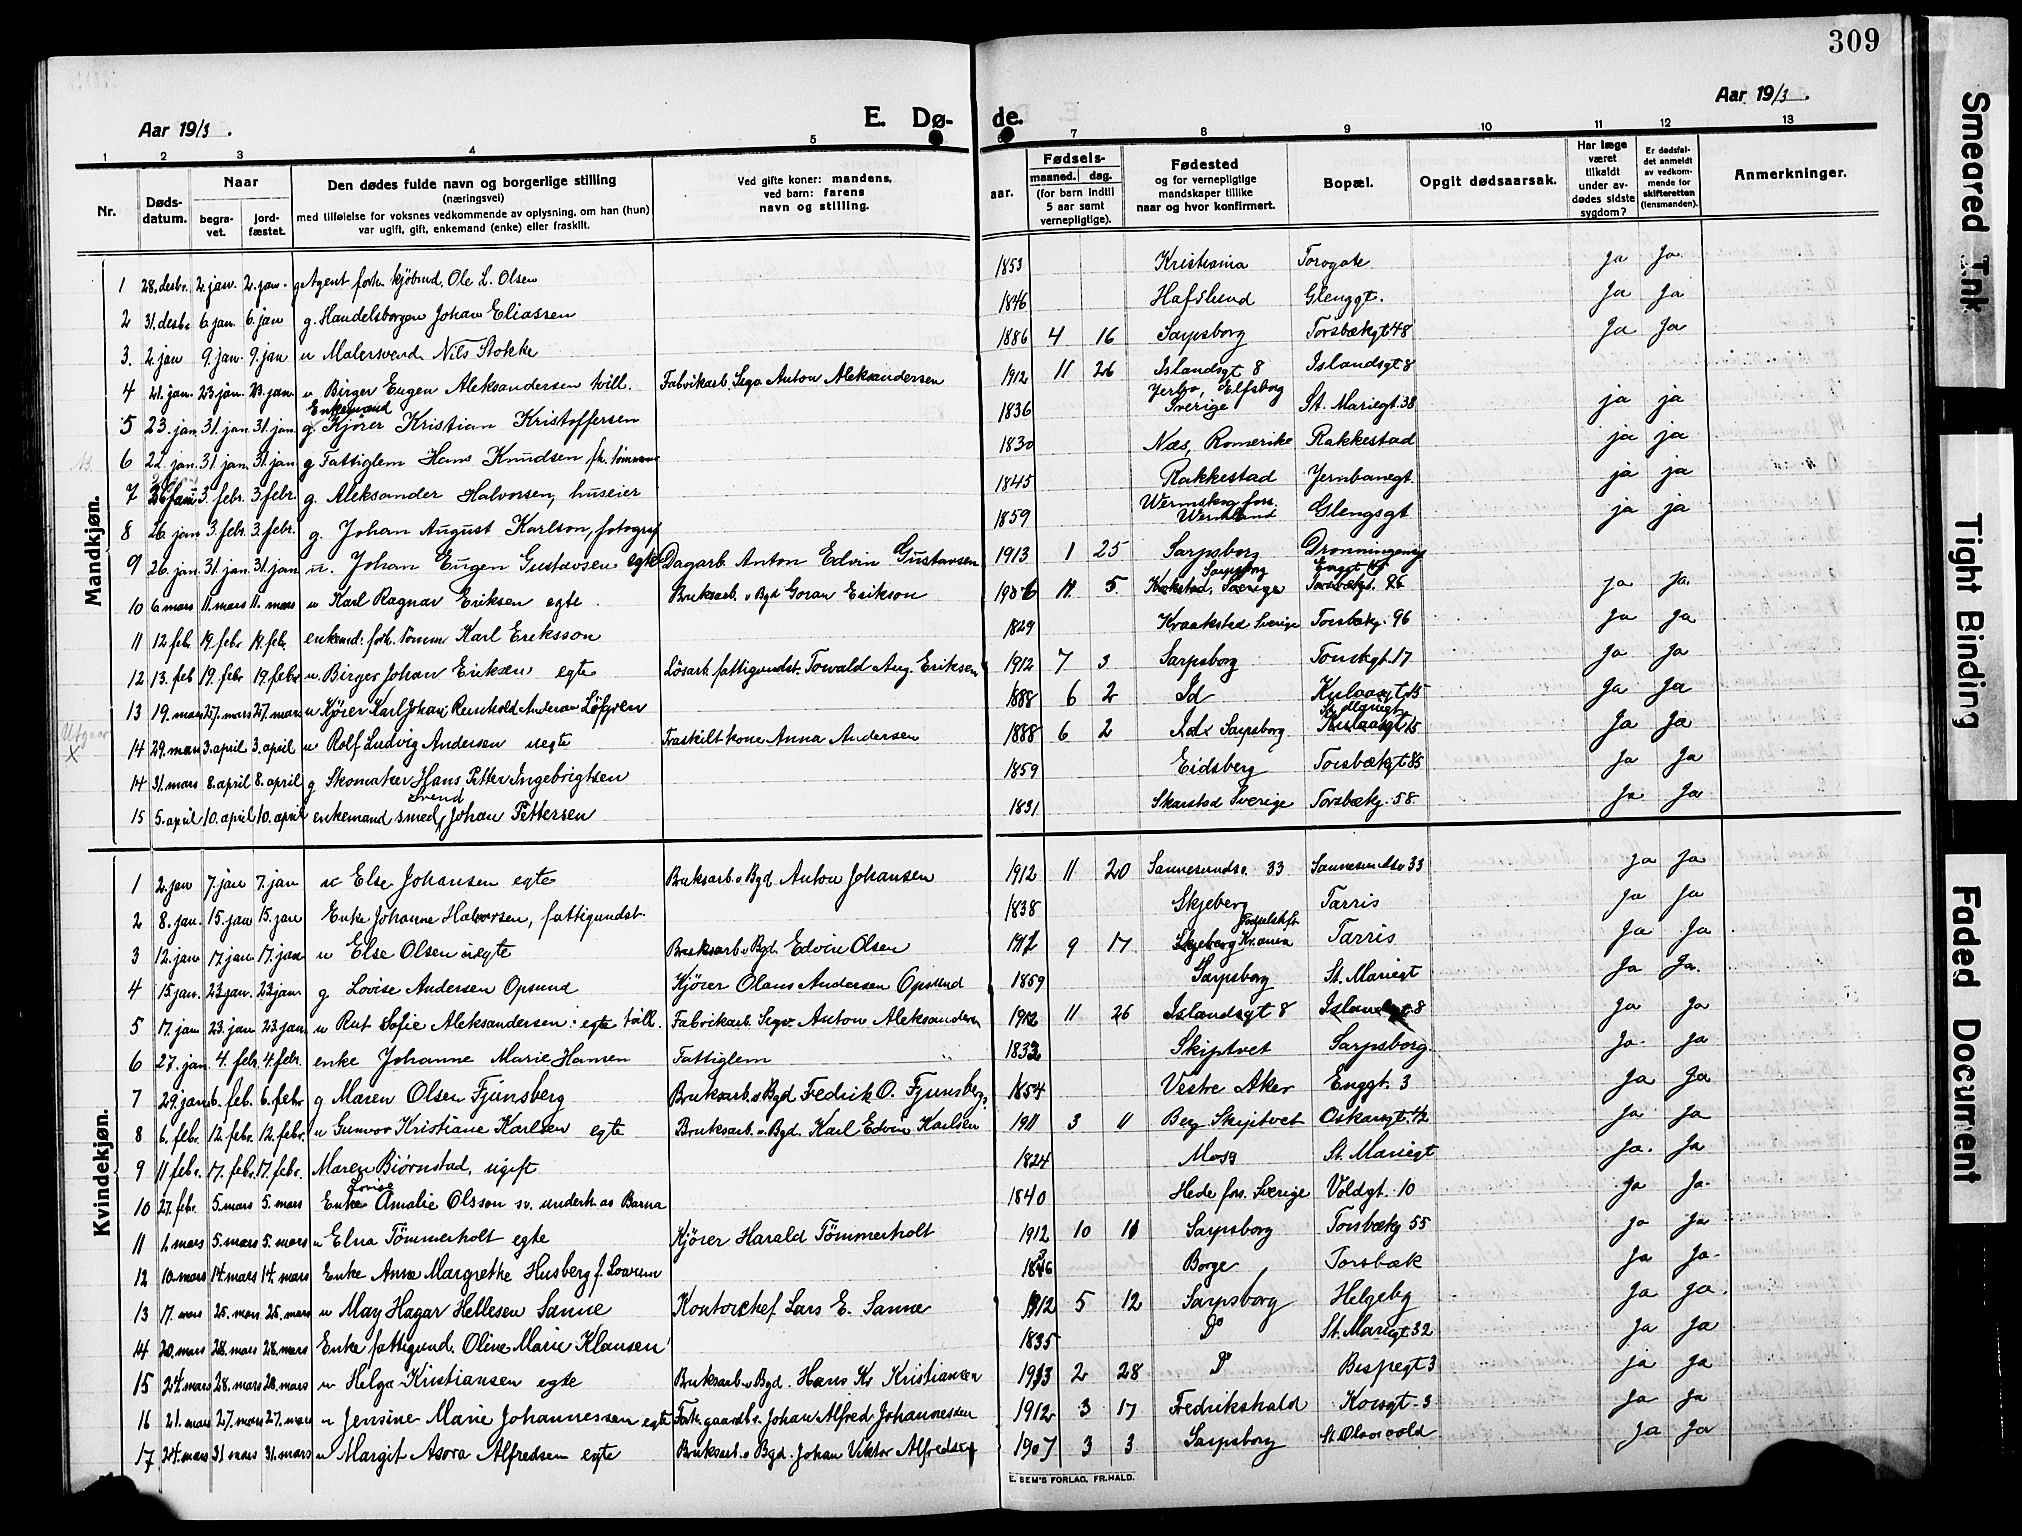 309
Smeared Ink
Tight Binding
Faded Document
Aar 1913.
E. Døde.
Aar 1913.
1 2 3 4 5 7 8 9 10 11 12 13
Nr.
Dødsdatum.
Naar
begravet.
jordfæstet.
Den dødes fulde navn og borgerlige stilling
(næringsvei)
med tilføielse for voksnes vedkommende av oplysning, om han (hun)
var ugift, gift, enkemand (enke) eller fraskilt.
Ved gifte koner: mandens,
ved barn: farens
navn og stilling.
aar.
Fødsels-
maaned. dag.
(for barn indtil
5 aar samt
vernepligtige).
Fødested
og for vernepligtige
mandskaper tillike
naar og hvor konfirmert.
Bopæl.
Opgit dødsaarsak.
Har læge
været
tilkaldt
under avdødes sidste
sygdom?
Er dødsfaldet anmeldt
av vedkommende for
skifteretten
(lensmanden).
Anmerkninger.
Mandkjøn.
1 28. desbr. 2 jan. 2. jan. g Agent forh. kjøbmd. Ole L. Olsen 1853 Kristiania Torvgate Ja Ja
2 31. desbr 6 jan. 6. jan g. Handelsborger Johan Eliassen 1846 Hafslund Glenggt. Ja Ja
3. 2. jan 9. jan. 9. jan u Malersvend Nils Stokke 1886 4 16 Sarpsborg Torsbækgt 48 Ja Ja
4 21. jan. 23 jan. 23. jan. u. Birger Eugen Aleksandersen tvill. Fabrikarb. Segv. Anton Aleksandersen 1912 11 26 Islandsgt 8 Islandsgt 8
5 23. jan. 31. jan. 31. jan. Enkemand g. Kjører Kristian Kristoffersen 1836 Jerbo, Elfsborg Sverige St. Mariegt. 38 ja ja
6 22. jan. 31 jan. 31. jan g Fattiglem Hans Knudsen fh. tømmerm 1830 Næs, Romerike Rakkestad ja ja
7 3. febr. 3 febr. g. Aleksander Halvorsen, huseier 1845 Rakkestad Jernbanegt. ja ja
8 26. jan 3. febr. 3. febr. g. Johan August Karlson, fotograf 1859 Wermland Glengsgt ja ja
9 26. jan. 31. jan. 31. jan u. Johan Eugen Gustavsen egte Dagarb. Anton Edvin Gustavsen 1913 1 25 Sarpsborg
10 6. mars 11. mars 11. mars u Karl Ragnar Eriksen egte. Bruksarb. v Bgd Göran Erikson 1906 11 5 Sarpsborg Torsbækgt. 86 ja ja.
11 12. febr. 19. febr 19. febr. enkemd. forh. tømm Karl Eriksson 1829 Kraakstad Sverige Torsbækg. 96 ja Ja
12 13. feb 19. febr 19. febr u. Birger Johan Eriksen egte Løsarb. fattigundst. Torvald Aug. Eriksen 1912 7 3 Sarpsborg Tomtegt. 17 Ja Ja
13 19. mars 27. mars 27. mars u Kjører Karl Johan Reinhold Anderson Löfgren 1888 6 2 Id Kulaasgt. 15 Ja Ja
Utgaar X
14 29. mars 3. april 3. april u Rolf Ludvig Andersen uegte Fraskilt kone Anna Andersen 1888 6 2 Id Sarpsborg Kulaasgt 15 Ja Ja
14 31. mars 8. april 8. april g Skomaker Hans Petter Ingebrigtsen 1859 Eidsberg Torsbækgt 85 Ja Ja
15 5. april 10. april 10. april enkemand smed svend Johan Pettersen 1831 Skarstad Sverige Torsbækg. 58. Ja Ja
Kvindekjøn.
1 2. jan 7. jan 7. jan u Else Johansen egte Bruksarb. v Bgd. Anton Johansen 1912 11 20 Sannesundsv. 33 Sannesundsv 33 Ja Ja
2 8. jan. 15. jan 15. jan Enke Johanne Halvorsen, fattigundst. 1838 Skjeberg Tarris Ja Ja
3 12. jan 17. jan. 17. jan u Else Olsen uegte Bruksarb. v Bgd. Edvin Olsen 1912 9 17 Skjeberg Fødselsst. Kr.ania Tarris Ja Ja
4 15. jan. 23. jan. 23. jan. g Lovise Andersen Opsund Kjører Olaus Andersen Opsund 1859 Sarpsborg St. Mariegt Ja Ja.
5 17. jan 23. jan 23. jan u Rut Sofie Aleksandersen egte tvill. Fabrikarb. Segv. Anton Aleksandersen 1912 11 26 Islandsgt 8 Islandsgt 8 Ja Ja
6 27. jan 4. febr 4. febr. enke Johanne Marie Hansen Fattiglem 1832 Skiptvet Sarpsborg Ja. Ja
7 29. jan 6. feb. 6. febr g Maren Olsen Fjunsberg Bruksarb. v Bgd Fredrik O. Fjunsberg 1854 Vestre Aker Enggt. 3 Ja Ja
8 6. febr 12. febr. 12. febr. u Gunvor Kristiane Karlsen egte Bruksarb. v. Bgd. Karl Edvin Karlsen 1911 3 11 Berg Skiptvet Oskarsgt. 42 Ja Ja
9 11 febr. 17. febr. 17. febr. Maren Bjørnstad, ugift 1824 Moss St. Mariegt Ja. Ja
10 27. febr. 5. mars 5. mars Enke Lovise Amalie Olsson sv. underh. av Barna 1840 Hede fors. Sverige Voldgt. 10 Ja Ja.
11 1. mars 5. mars 5. mars u Elna Tömmerholt egte Kjører Harald Tömmerholt 1912 10 10 Sarpsborg Torsbækg 55 Ja Ja
12 10. mars 14. mars 14. mars Enke Anne Margrethe Husberg f. Borge Torsbæk Ja Ja.
13 17. mars 25. mars 25. mars u May Hagar Hellesen Sanne Kontorchef Lars E. Sanne 1912 5 12 Sarpsborg Helgeby Ja Ja.
14 20. mars 28. mars 28. mars Enke fattigund. Oline Marie Klausen 1835 Do St. Mariegt. 32 Ja Ja
15 24. mars 28. mars 28. mars u Helga Kristiansen egte Bruksarb. v Bgd. Hans Kr Kristiansen 1913 2 28 Do Bispegt 3 ja Ja
16 21. mars 27. mars 27. mars u Jensine Marie Johannessen egte Forh. gaardb. Johan Alfred Johannessen 1912 3 17 Fredrikshald Korsgt. 3 Ja Ja
17 24. mars 31 mars 31. mars u Margit Asora Alfredsen egte Bruksarb. v Bgd. Johan Viktor Alfredsen 1907 3 3 Sarpsborg St. Olavsvold Ja Ja
E. SEM'S FORLAG, FR.HALD.